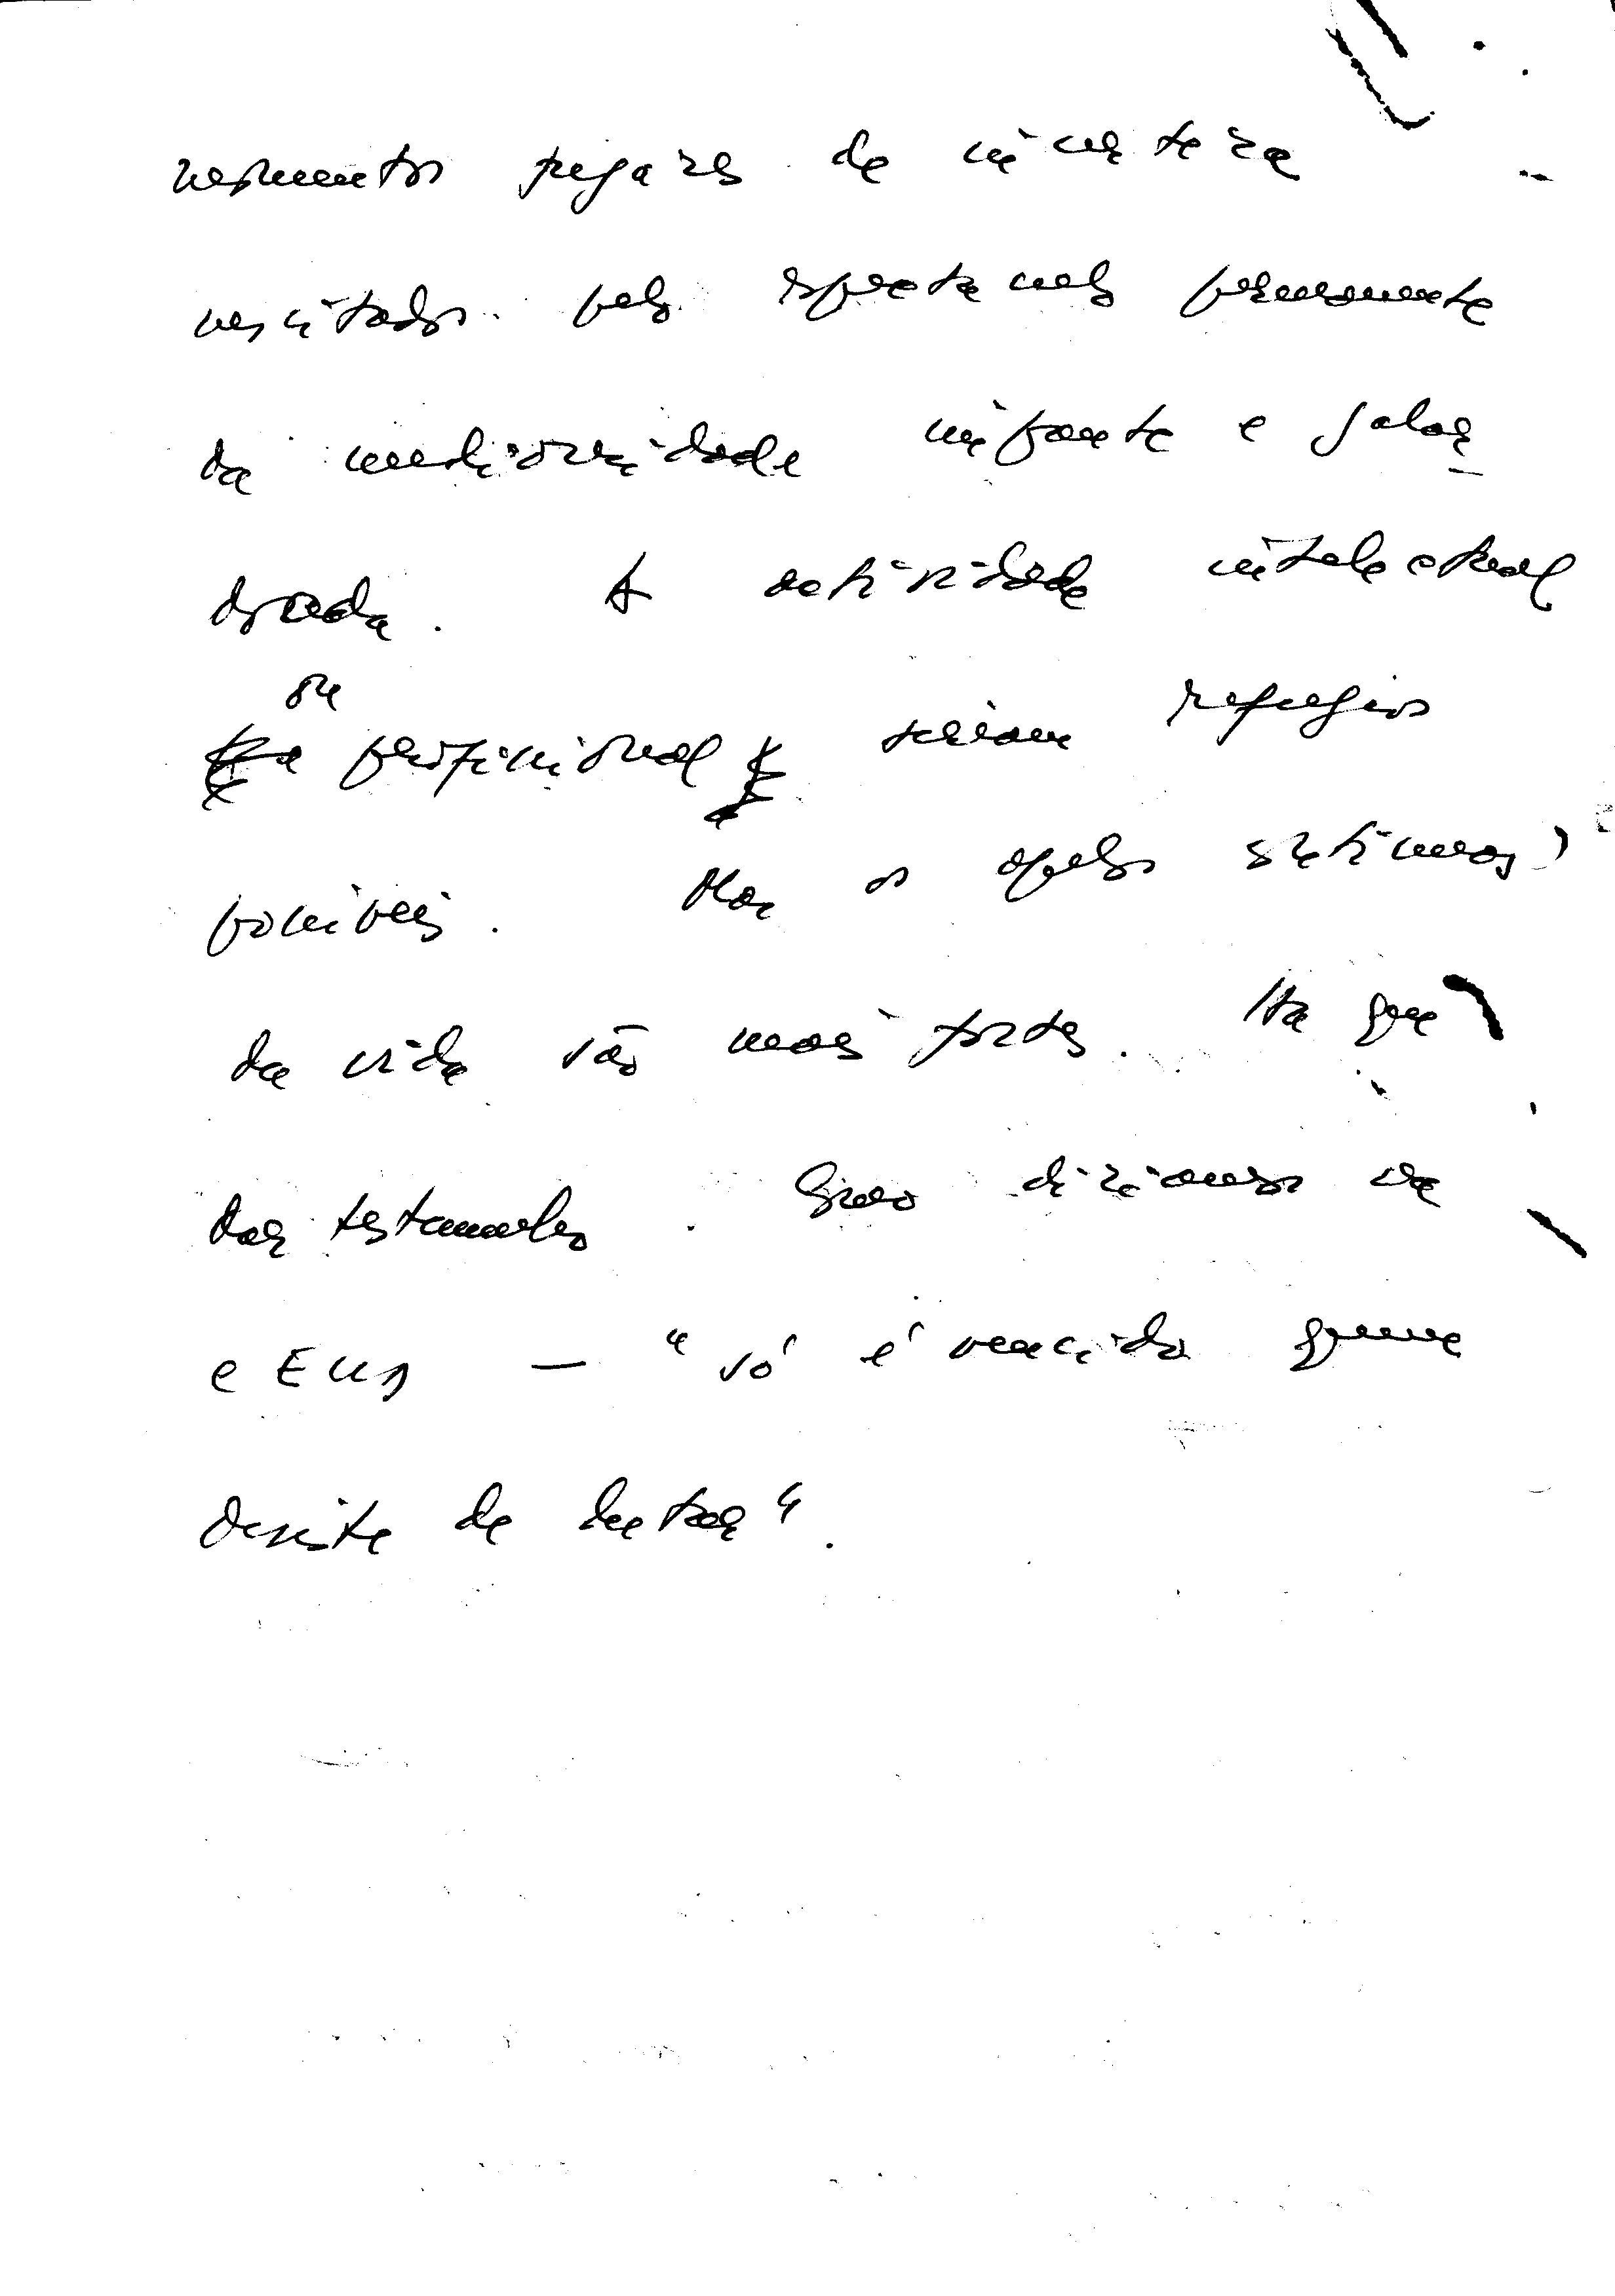 momentos fugazes de incerteza
suscitados pelo espetáculo permanente
da mediocridade infante e galar
doada. A actividade intelectual
ou
profissional seriam refúgios
possíveis. Mas os apelos
da vida são mais fortes. Há que
dar testemunho. Como dizíamos na
e EUA — "só é vencido quem
desiste de lutar".